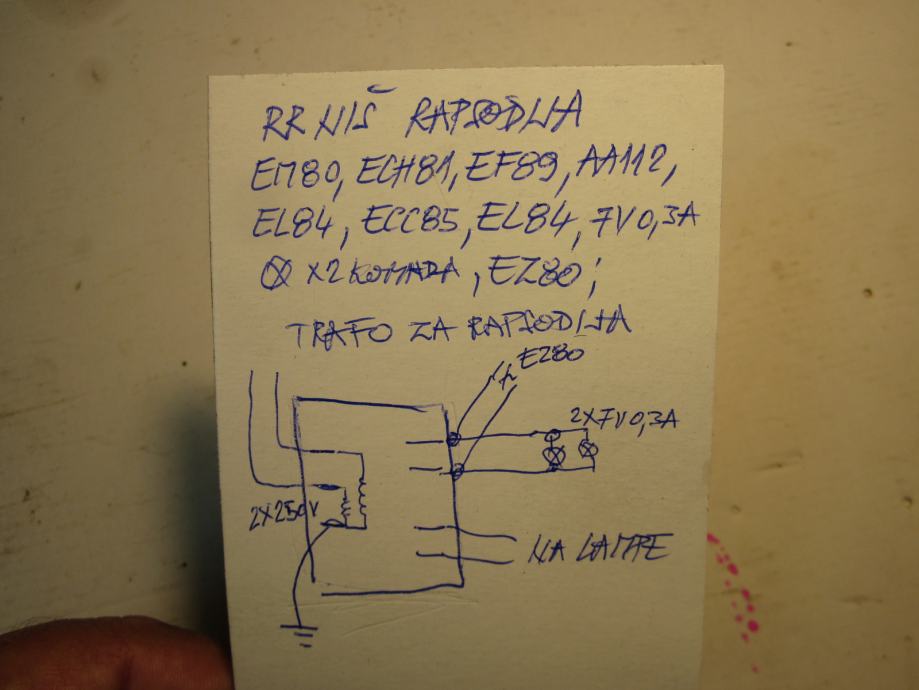 RR NIŠ RAPSODIJA
EM80, ECH81, EF89, AA112,
EL84, ECC85, EL84, 7V 0,3A
X2 KOMADA, EZ80;
TRAFO ZA RAPSODIJA
EZ80
2X7V 0,3A
2X250V
NA LAMPE